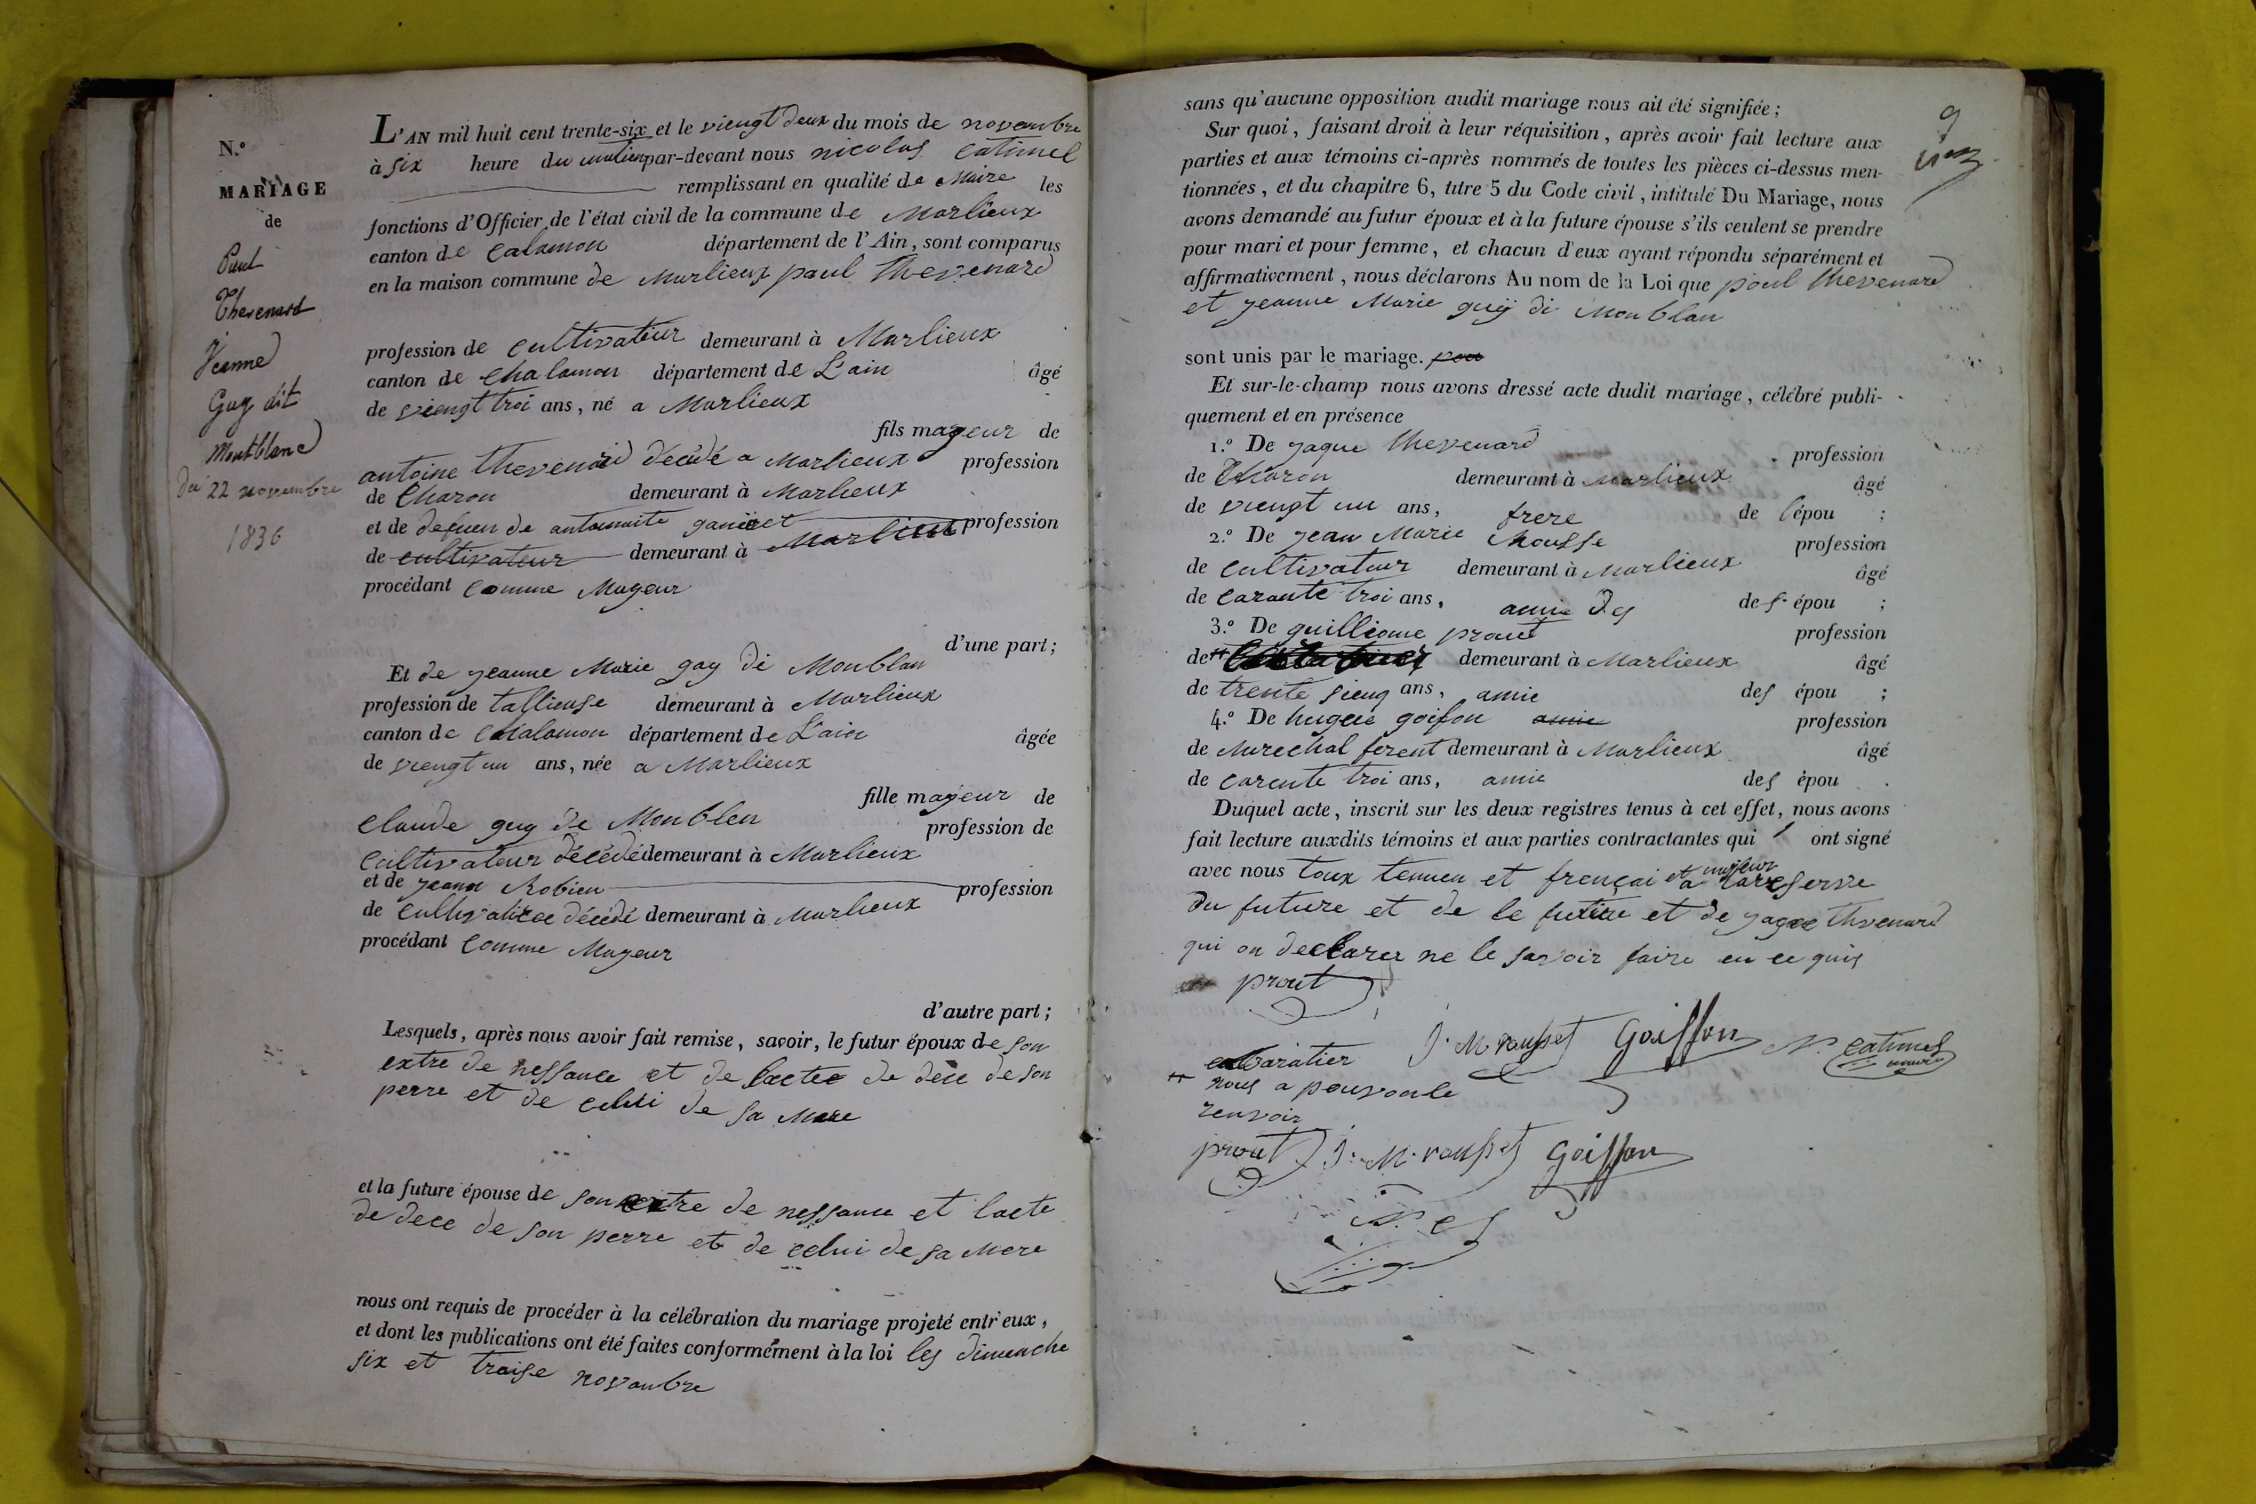 N.°
MARIAGE
de
Paul
Thevenard
Jeanne
Guy dit
Montblanc
Du 22 novembre
1836
L'AN mil huit cent trente-six et le viengt deux du mois de novembre
à six heure du matien par-devant nous nicolas catimel
remplissant en qualité de Maire les
fonctions d'Officier de l'état civil de la commune de Marlieux
canton de Calamon département de l'Ain, sont comparus
en la maison commune de Marlieux paul thevenard
profession de cultivateur demeurant à Marlieux
canton de Chalamon département de L'ain âgé
de viengt troi ans, né a Marlieux
fils mageur de
antoine thevenard décédé a Marlieux profession
de Charon demeurant à Marlieux
et de defuen de antoinnite profession
de cultivateur demeurant à Marlieux
procédant comme Mageur
d'une part;
Et de jeanne Marie gay di Moublan
profession de tallieuse demeurant à Marlieux
canton de Chalamon département de L'ain âgée
de viengt un ans, née a Marlieux
fille majeur de
claude guy de Monblen
profession de
cultivateur décédé demeurant à Marlieux
et de jeann Robien profession
de décédé demeurant à Marlieux
procédant comme Mageur
d'autre part;
Lesquels, après nous avoir fait remise, savoir, le futur époux de son
extre de nessance et de lactee de dece de son
perre et de celui de sa Mere
et la future épouse de son extre de nessance et lacte
de dece de son perre et de celui de sa Mere
nous ont requis de procéder à la célébration du mariage projeté entr'eux,
et dont les publications ont été faites conformément à la loi les dimenche
six et traise novanbre
9
sans qu'aucune opposition audit mariage nous ait été signifiée;
Sur quoi, faisant droit à leur réquisition, après avoir fait lecture aux
parties et aux témoins ci-après nommés de toutes les pièces ci-dessus men-
tionnées, et du chapitre 6, titre 5 du Code civil, intitulé Du Mariage, nous
avons demandé au futur époux et à la future épouse s'ils veulent se prendre
pour mari et pour femme, et chacun d'eux ayant répondu séparément et
affirmativement, nous déclarons Au nom de la Loi que paul thevenard
et jeanne Marie guÿ di Moublan
sont unis par le mariage. pou
Et sur-le-champ nous avons dressé acte dudit mariage, célébré publi-
quement et en présence
1.° De jaque thevenard profession
de Charon demeurant à Marlieux âgé
de viengt un ans, frere de l'épou ;
2.° De jean Marie Rousse profession
de cultivateur demeurant à Marlieux âgé
de carante troi ans, amie des de s. épou ;
3.° De guilliome prout profession
de demeurant à Marlieux âgé
de trente sienq ans, amie des épou ;
4.° De hugue goifon amie profession
de Marechal ferent demeurant à Marlieux âgé
de carente troi ans, amie des épou
Duquel acte, inscrit sur les deux registres tenus à cet effet, nous avons
fait lecture auxdits témoins et aux parties contractantes qui ont signé
avec nous toux temuen et françai et majeur a lareserve
du future et de le future et de jaque thvenard
qui on declarer ne le savoir faire en ce quis
prout
J. M rousset Goiffon N. catimel
maire
cabaratier
nous a pouvonle
renvoir
prout J. M. rousset Goiffon
N. C